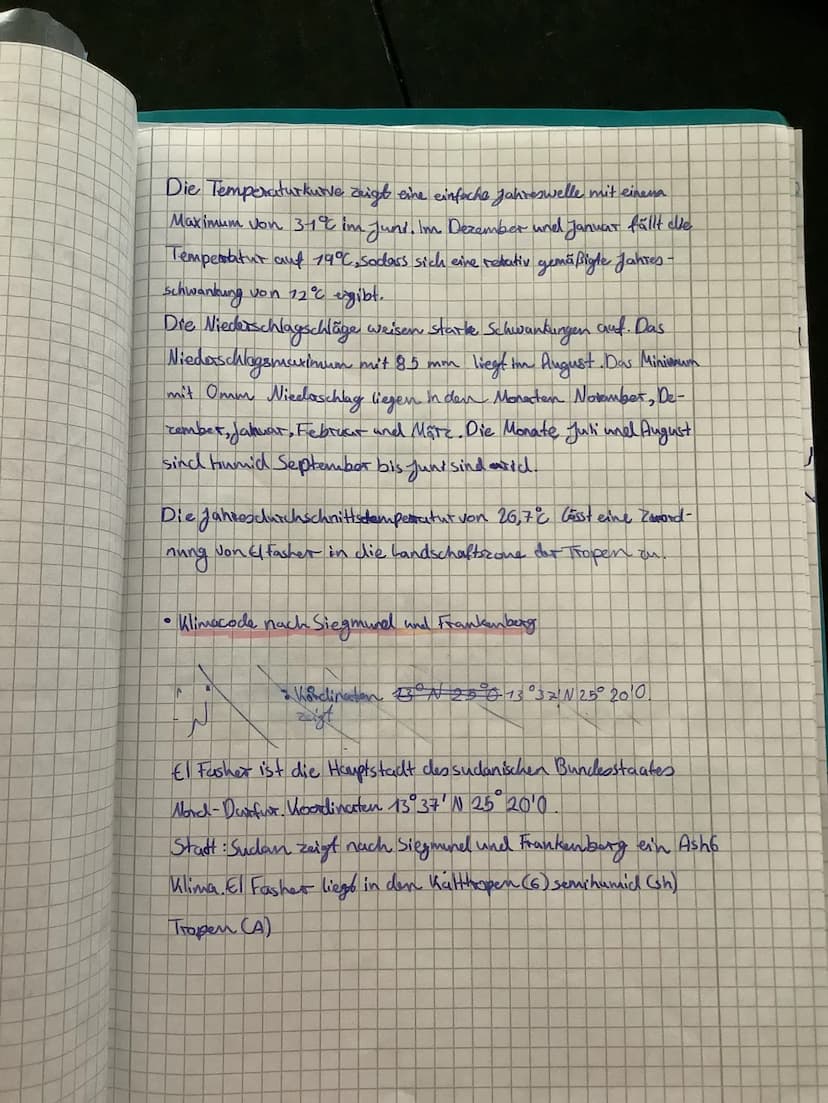 Die Temperaturkurve zeigt eine einfache Jahreswelle mit einem
Maximum von 31°C im Juni. Im Dezember und Januar fällt die
Temperatur auf 19°C, sodass sich eine relativ gemäßigte Jahres-
schwankung von 12°C ergibt.
Die Niederschlagschläge weisen starke Schwankungen auf. Das
Niederschlagsmaximum mit 85 mm liegt im August. Das Minimum
mit 0mm Niederschlag liegen in den Monaten November, De-
zember, Januar, Februar und März. Die Monate Juli und August
sind humid September bis Juni sind arid.
Die Jahresdurchschnittstemperatur von 26,7°C lässt eine Zuord-
nung von El Fasher in die Landschaftszone der Tropen zu.
• Klimacode nach Siegmund und Frankenberg
Koordinaten 13°N 25°O 13°37'N 25°20'O.
zeigt
El Fasher ist die Hauptstadt des sudanischen Bundesstaates
Nord-Darfur. Koordinaten 13°37'N 25°20'O.
Statt: Sudan zeigt nach Siegmund und Frankenberg ein Ash6
Klima. El Fasher liegt in den Kalttropen (6) semihumid (sh)
Tropen (A)